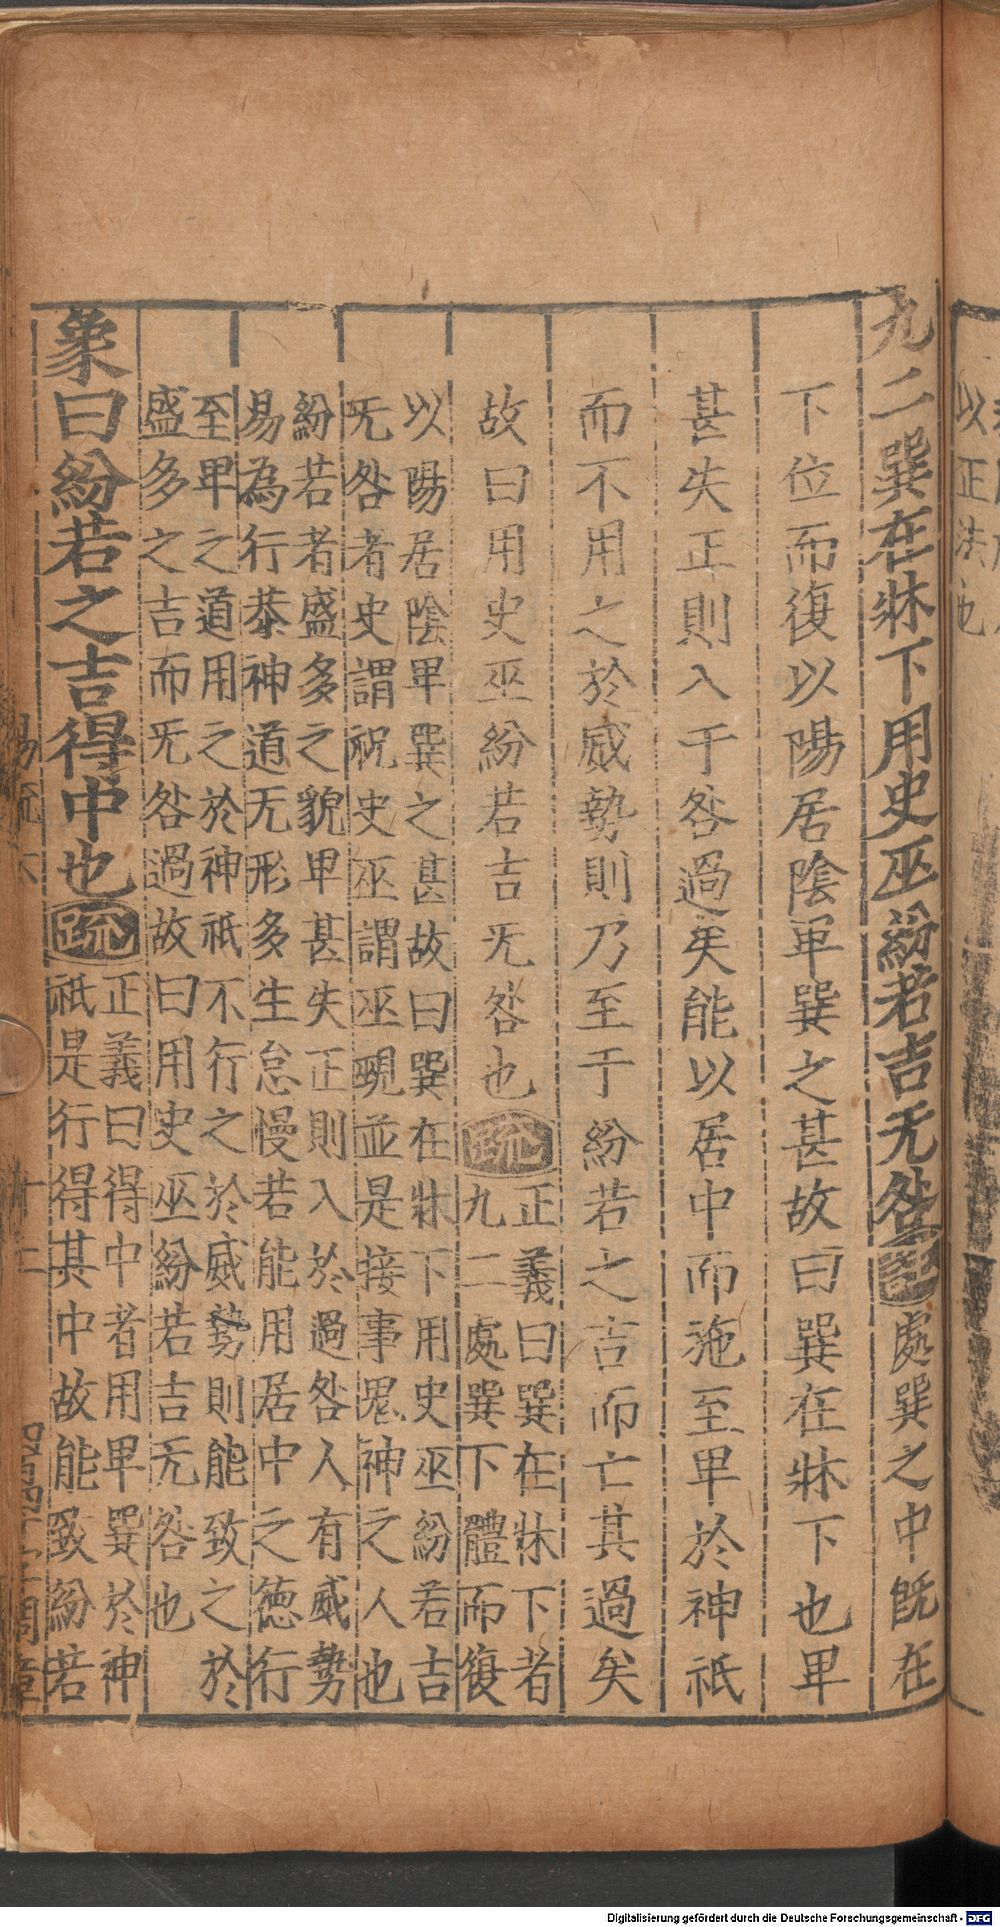 九二巽在牀下用史巫紛若吉无咎註處巽之中旣在
下位而復以陽居陰卑巽之甚故曰巽在牀下也卑
甚失正則入于咎過矣能以居中而施至卑於神祇
而不用之於威勢則乃至于紛若之吉而亡其過矣
故曰用史巫紛若吉无咎也疏
正義曰巽在牀下者
九二處巽下體而復
以陽居陰卑巽之甚故曰巽在牀下用史巫紛若吉
无咎者史謂祝史巫謂巫覡並是接事鬼神之人也
紛若者盛多之貌卑甚失正則入於過咎人有威勢
易為行恭神道无形多生怠慢若能用居中之德行
至卑之道用之於神祇不行之於威勢則能致之於
盛多之吉而无咎過故曰用史巫紛若吉无咎也
象曰紛若之吉得中也疏
正義曰得中者用卑巽於神
祇是行得其中故能致紛若
易疏
以正法也
Digitalisierung gefördert durch die Deutsche Forschungsgemeinschaft - DFG